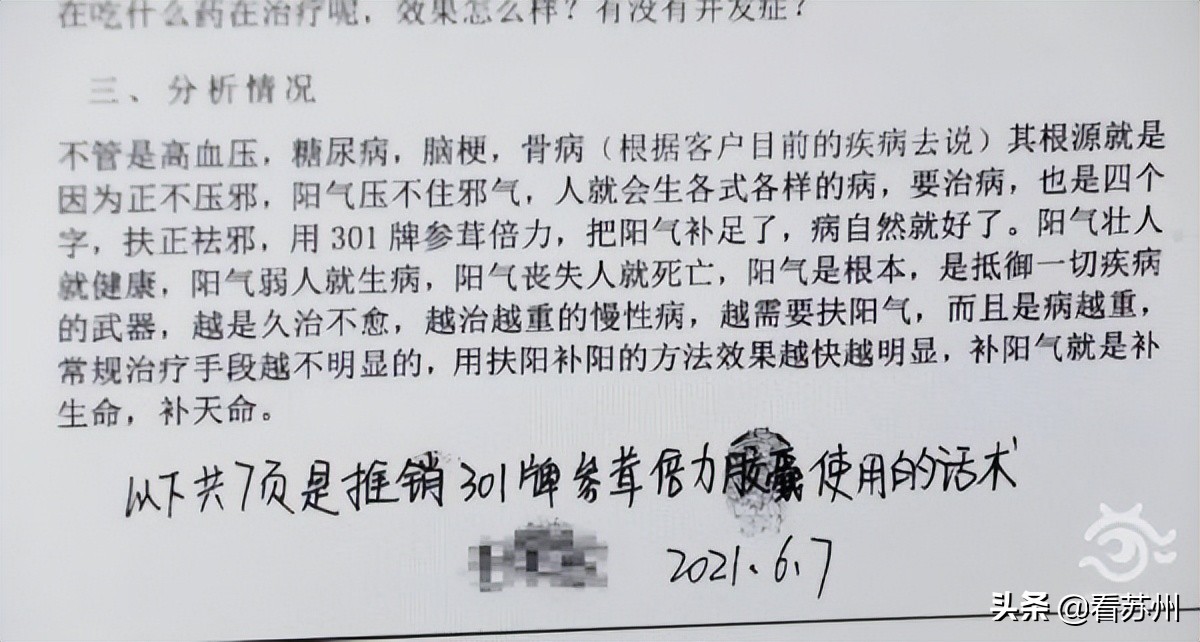 在吃什么药在治疗呢，效果怎么样？有没有并发症？
三、分析情况
不管是高血压，糖尿病，脑梗，骨病（根据客户目前的疾病去说）其根源就是
因为正不压邪，阳气压不住邪气，人就会生各式各样的病，要治病，也是四个
字，扶正祛邪，用 301 牌参茸倍力，把阳气补足了，病自然就好了。阳气壮人
就健康，阳气弱人就生病，阳气丧失人就死亡，阳气是根本，是抵御一切疾病
的武器，越是久治不愈，越治越重的慢性病，越需要扶阳气，而且是病越重，
常规治疗手段越不明显的，用扶阳补阳的方法效果越快越明显，补阳气就是补
生命，补天命。
以下共7页是推销301牌参茸倍力胶囊使用的话术
2021.6.7
头条 @看苏州